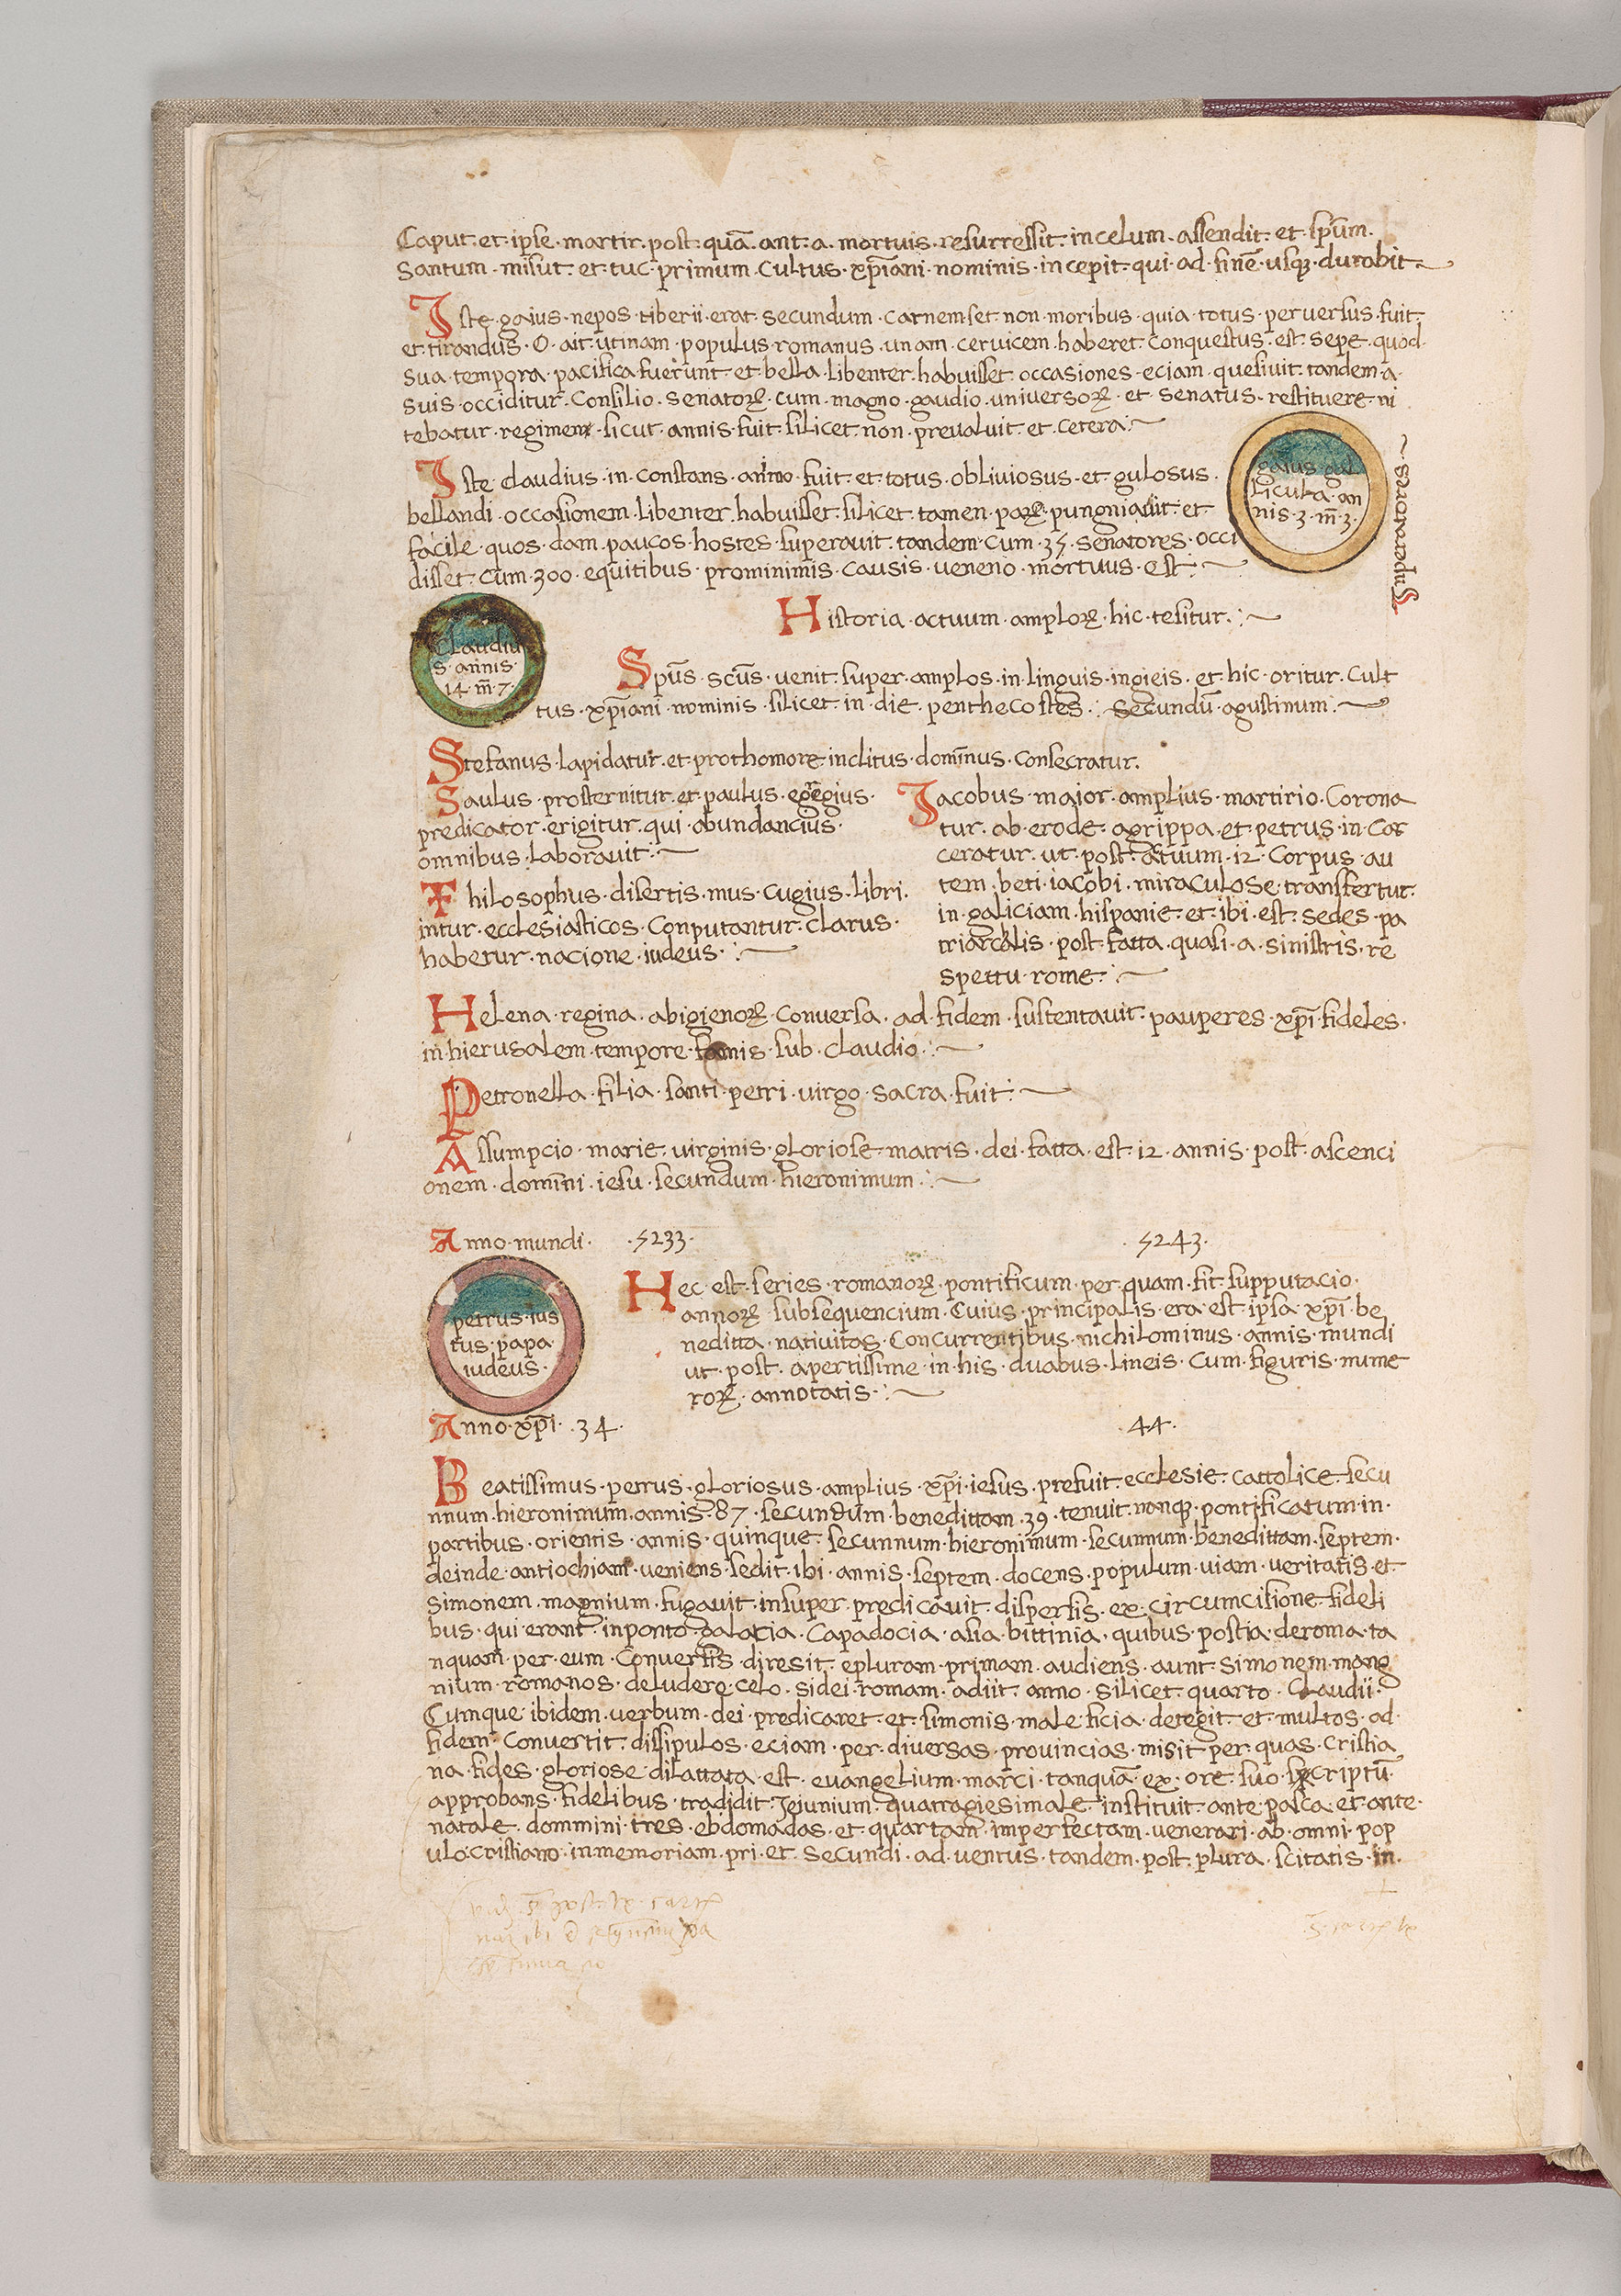 Caput · et · ipse · martir · post · quā · ant · a · mortuis · resurressit · in celum · assendit · et · sp̄um ·
Santum · misut · et · tuc · primum · Cultus · xp̄iani · nominis · incepit · qui · ad · finē · usq3 · durabit
Iste · gaius · nepos · tiberii · erat · secundum · carnem set · non · moribus · quia · totus · perversus · fuit ·
et · tirandus · O · ait · utinam · populus · romanus · unam · cervicem · haberet · conquestus · est · sepe · quod ·
sua · tempora · pacifica · fuerunt · et · bella · libenter · habuisset · occasiones · eciam · quesivit · tandem · a ·
suis · occiditur · Consilio · senatorꝝ · cum · magno · gaudio · universorꝝ · et · senatus · restituere · ni
tebatur · regimen · sicut · annis · fuit · silicet · non · prevaluit · et · cetera
gaius · gal
licula · an
nis · 3 · m̄ · 3 ·
Inparatores
Iste · claudius · in · constans · animo · fuit · et · totus · obliviosus · et · gulosus ·
bellandi · occasionem · libenter · habuisset · silicet · tamen · parꝝ · pungniavit · et
facile · quos · dam · paucos · hostes · superavit · tandem · cum · 35 · senatores · occi
disset · cum · 300 · equitibus · prominimis · causis · veneno · mortuus · est
Claudiu
s · annis ·
14 · m̄ · 7 ·
Historia · actuum · amplorꝝ · hic · tesitur ·
Spūs · scūs · venit · super · amplos · in · linguis · ingieis · et · hic · oritur · Cult
tus · xp̄iani · nominis · silicet · in · die · penthecostes · secundū · agustinum ·
Stefanus · lapidatur · et · prothomore · inclitus · dominus · consecratur ·
Saulus · prosternitur · et · paulus · egregius ·
predicator · erigitur · qui · abundancius ·
omnibus · laboravit
Iacobus · maior · amplius · martirio · Corona
tur · ab · erode · agrippa · et · petrus · in · Car
ceratur · ut · post · actuum · 12 · Corpus · au
tem · beti · iacobi · miraculose · transfertur ·
in · galiciam · hispanie · et · ibi · est · sedes · pa
triarcalis · post · fatta · quasi · a · sinistris · re
spettu · rome
Fhilosophus · disertis · mus · cugius · libri ·
intur · ecclesiasticos · Conputantur · clarus ·
habetur · nacione · iudeus ·
Helena · regina · abigienorꝝ · conversa · ad · fidem · sustentavit · pauperes · xp̄i · fideles ·
in hierusalem · tempore · famis · sub · claudio ·
Petronella · filia · santi · petri · virgo · sacra · fuit ·
Assumpcio · marie · virginis · gloriose · matris · dei · fatta · est · 12 · annis · post · ascenci
onem · domini · iesu · secundum · hieronimum ·
Anno · mundi · · 5233 · · 5243 ·
petrus · ius
tus · papa ·
iudeus ·
Hec · est · series · romanorꝝ · pontificum · per · quam · fit · supputacio ·
annorꝝ · subsequencium · Cuius · principalis · era · est · ipsa · xp̄i · be
neditta · nativitas · Concurrentibus · nichilominus · annis · mundi
ut · post · apertissime · in · his · duabus · lineis · cum · figuris · nume
rorꝝ · annotatis ·
Anno · xp̄i · · 34 · · 44 ·
Beatissimus · petrus · gloriosus · amplius · xp̄i · iesus · prefuit · ecclesie · cattolice · secu
nnum · hieronimum · annis · 87 · secundum · benedittam · 39 · tenuit · nanq3 · pontificatum · in ·
partibus · orientis · annis · quinque · secunnum · hieronimum · secunnum · benedittam · septem ·
deinde · antiochiam · veniens · sedit · ibi · annis · septem · docens · populum · viam · veritatis · et
simonem · magnium · fugavit · insuper · predicavit · dispersis · ex · circumcisione · fideli
bus · qui · erant · in ponto · galatia · Capadocia · asia · bittinia · quibus · postia · deroma · ta
nquam · per · eum · conversis · diresit · epluram · primam · audiens · aunt · simonem · mang
nium · romanos · deludere · celo · sidei · romam · adiit · anno · silicet · quarto · Claudii ·
Cumque · ibidem · verbum · dei · predicaret · et · simonis · male · ficia · detegit · et · multos · ad ·
fidem · convertit · dissipulos · eciam · per · diversas · provincias · misit · per · quas · cristia
na · fides · gloriose · dilattata · est · evangelium · marci · tanquā · ex · ore · suo · scriptū ·
approbans · fidelibus · tradidit · Jejunium · quatragiesimale · instituit · ante · pasca · et · ante ·
natale · dommini · tres · ebdomadas · et · quartam · imperfectam · venerari · ab · omni · pop
ulo · cristiano · in memoriam · pri · et · secundi · ad · ventus · tandem · post · plura · scitatis · in ·